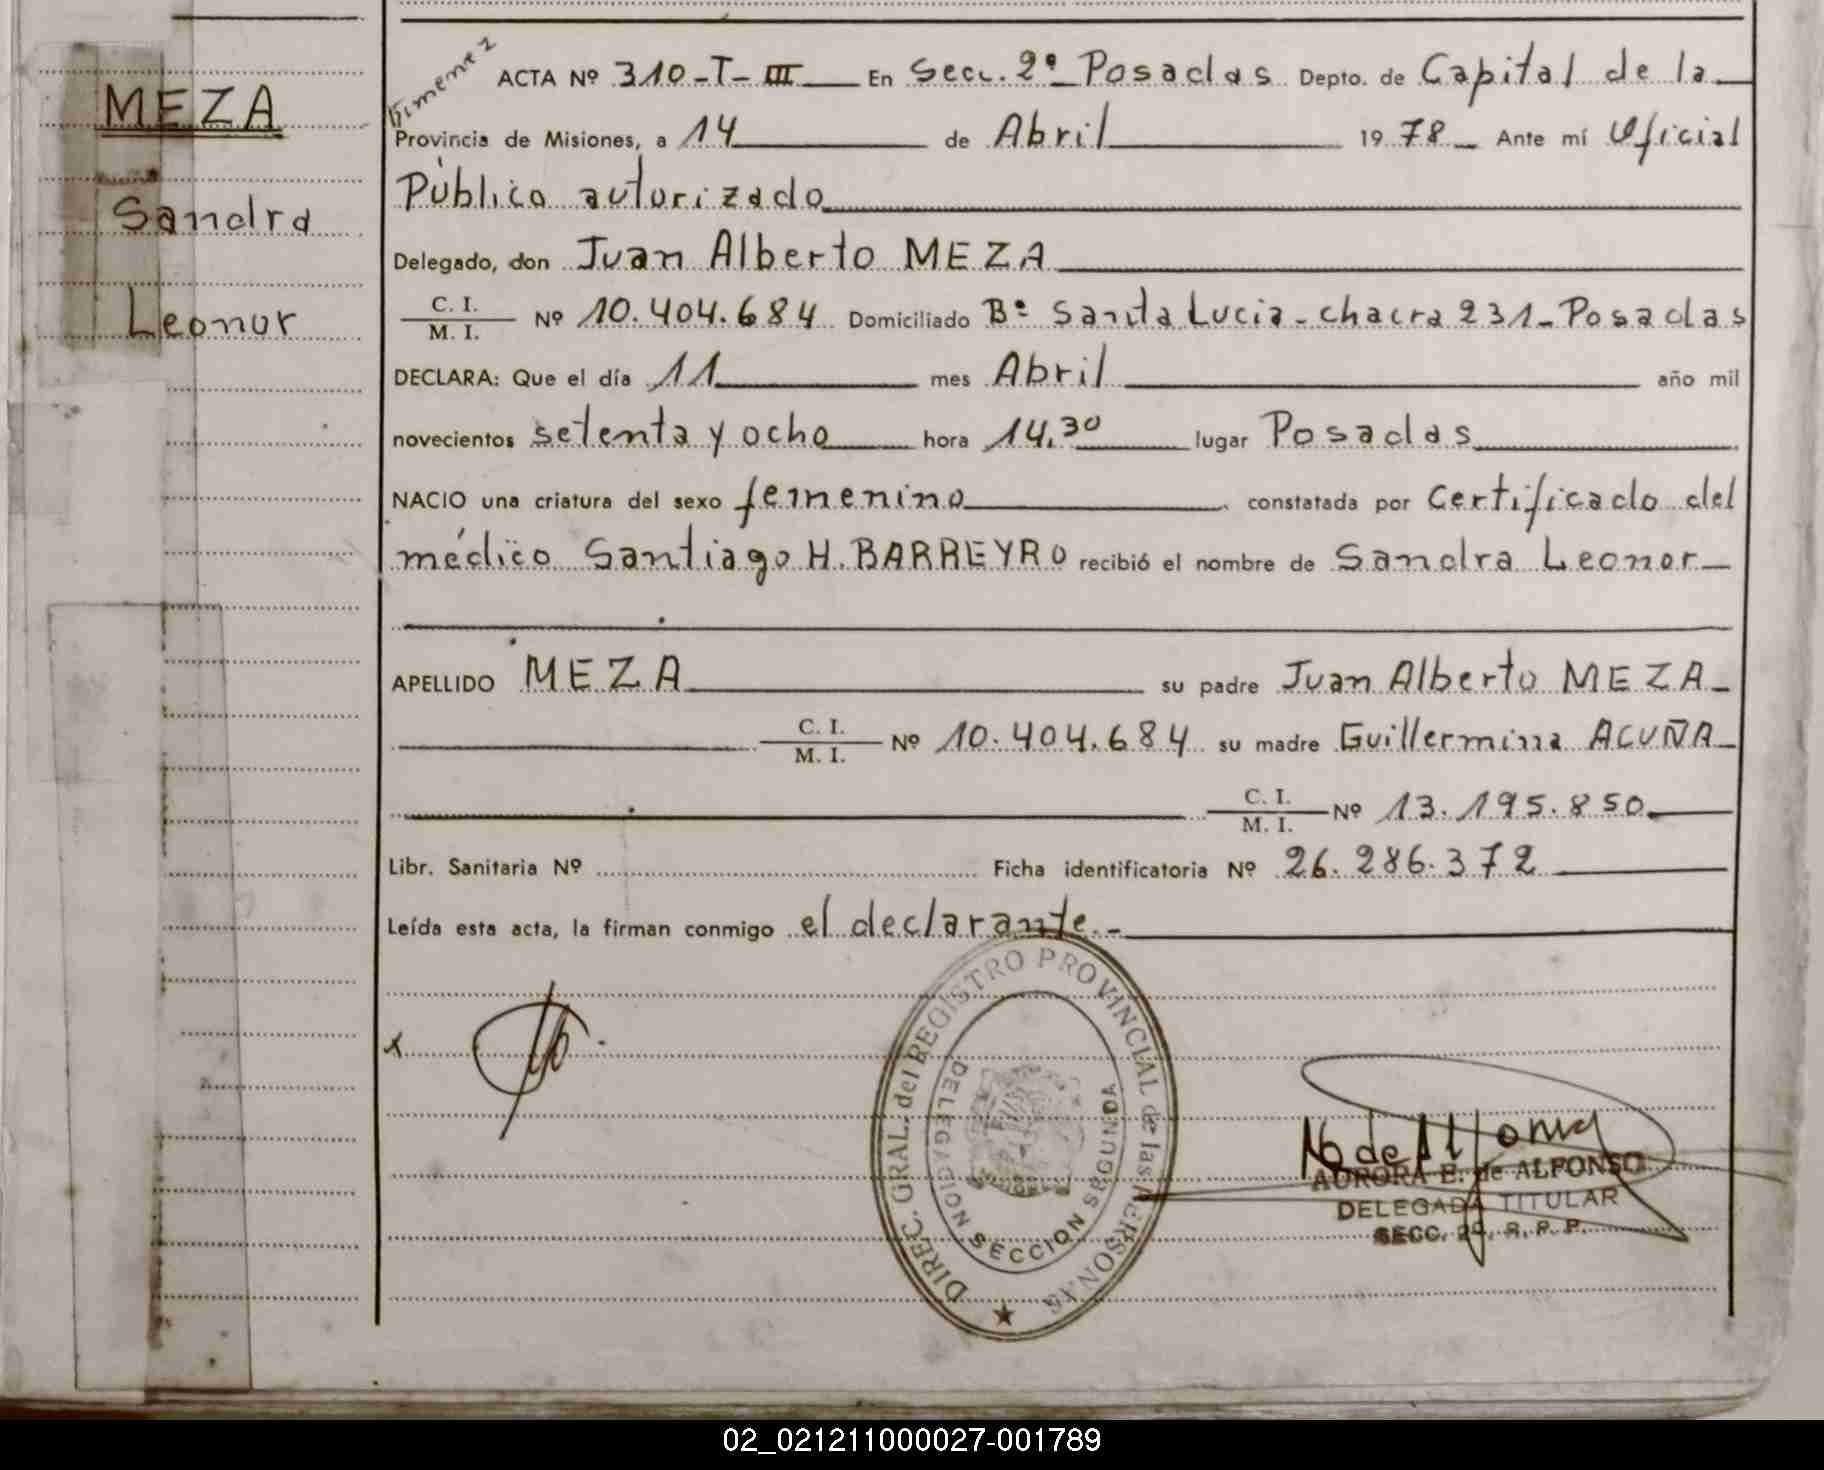 MEZA
Sandra
Leonor
Gimenez
ACTA Nº 310-T-III En Secc. 2º Posadas Depto. de Capital de la
Provincia de Misiones, a 14 de Abril 1978 Ante mí Oficial
Público autorizado
Delegado, don Juan Alberto MEZA
C. I.
M. I. Nº 10.404.684 Domiciliado Bº Santa Lucia - chacra 231 - Posadas
DECLARA: Que el día 11 mes Abril año mil
novecientos setenta y ocho hora 14,30 lugar Posadas
NACIO una criatura del sexo femenino constatada por Certificado del
médico Santiago H. BARREYRO recibió el nombre de Sandra Leonor
APELLIDO MEZA su padre Juan Alberto MEZA
C. I.
M. I. Nº 10.404.684 su madre Guillermina ACUÑA
C. I.
M. I. Nº 13.195.850
Libr. Sanitaria Nº Ficha identificatoria Nº 26.286.372
Leída esta acta, la firman conmigo el declarante.-
x
DIREC. GRAL. del REGISTRO PROVINCIAL de las PERSONAS
DELEGACION SECCION SEGUNDA
AURORA E. de ALFONSO
DELEGADA TITULAR
SECC. 2º, R. P. P.
02_021211000027-001789